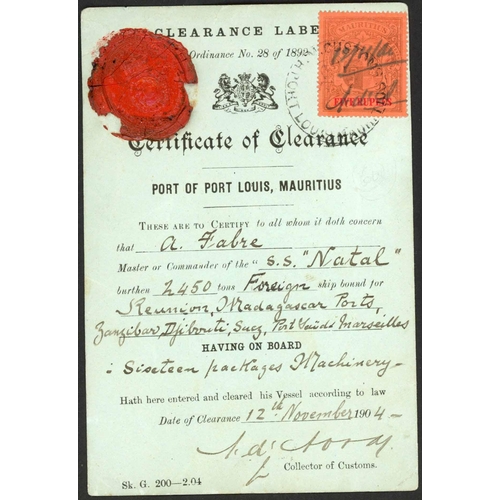 CLEARANCE LABE
Ordinance No. 28 of 1892
MAURITIUS
FIVE RUPEES
CUSTOMS
PORT LOUIS MAURITIUS
Certificate of Clearance
PORT OF PORT LOUIS, MAURITIUS
THESE ARE TO CERTIFY to all whom it doth concern
that A. Fabre
Master or Commander of the "S.S. "Natal"
burthen 2450 tons Foreign ship bound for
Reunion, Madagascar Ports,
Zanzibar, Djibouti, Suez, Port Saïd & Marseilles
HAVING ON BOARD
Sixteen packages Machinery
Hath here entered and cleared his Vessel according to law
Date of Clearance 12th November 1904
Collector of Customs.
Sk. G. 200—2.04